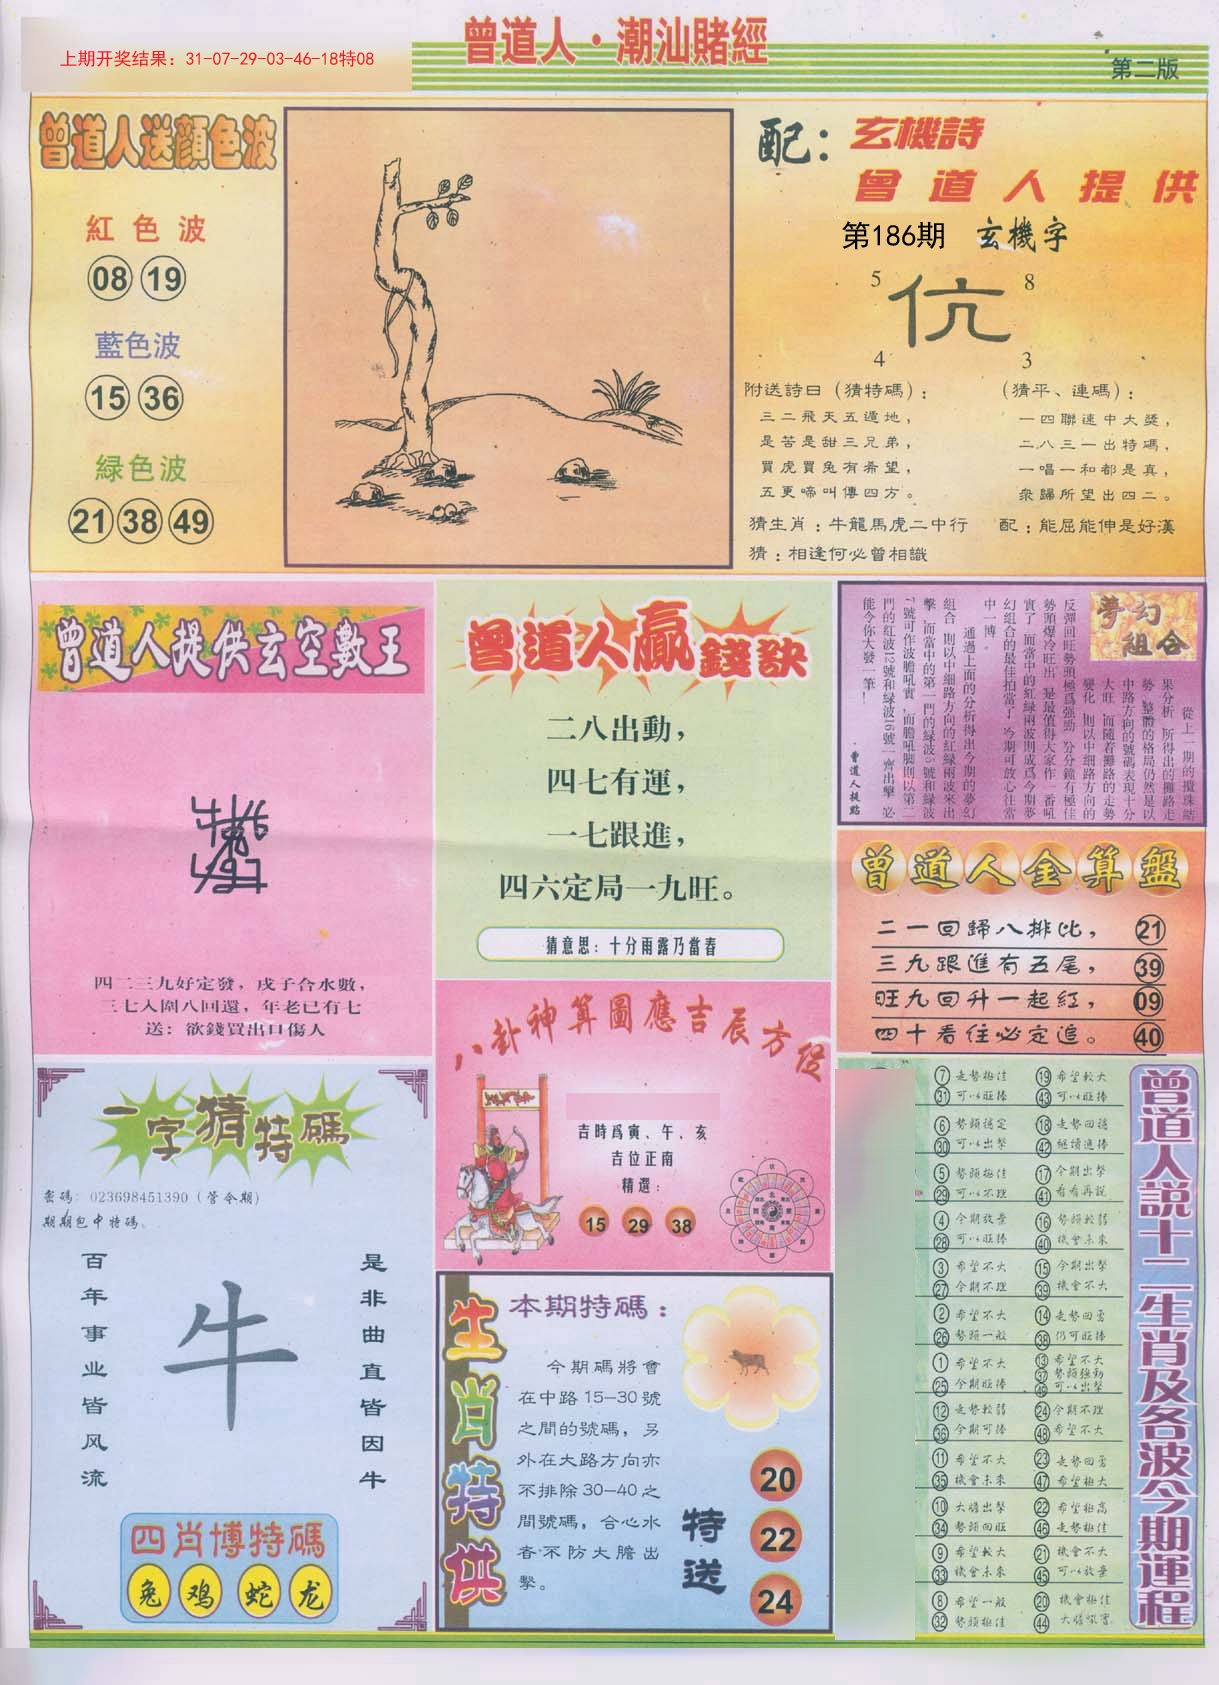 曾道人·潮汕賭經
上期开奖结果：31-07-29-03-46-18特08
第二版
曾道人送顔色波
紅色波
08 19
藍色波
15 36
緑色波
21 38 49
配：玄機詩
曾道人提供
第186期 玄機字
5 8
伉
4 3
附送詩曰（猜特碼）：
三二飛天五遁地，
是苦是甜三兄弟，
買虎買兔有希望，
五更啼叫傳四方。
（猜平、連碼）：
一四聯速中大獎，
二八三一出特碼，
一唱一和都是真，
衆歸所望出四二。
猜生肖：牛龍馬虎二中行
配：能屈能伸是好漢
猜：相逢何必曾相識
曾道人提供玄空數王
四二三九好定發，戌子合水數，
三七入圍八回還，年老已有七
送：欲錢買出口傷人
曾道人贏錢訣
二八出動，
四七有運，
一七跟進，
四六定局一九旺。
猜意思：十分雨露乃當春
夢幻組合
從上一期的攪珠結
果分析，所得出的攤路走
勢，整體的格局仍然是以
中路方向的號碼表現十分
大旺，而隨着攤路的走勢
變化，則以中細路方向的
反彈回旺勢頭極爲強勁，分分鐘有極佳
勢頭爆冷旺出，是最值得大家作一番吼
實了，而當中的紅緑兩波則成爲今期夢
幻組合的最佳拍當了，今期可放心往當
中一博。
通過上面的分析得出今期的夢幻
組合，則以中細路方向的紅緑兩波來出
擊，而當中的第一門的緑波5號和緑波
7號可作波膽吼實，而膽吼脚則以第二
門的紅波12號和緑波16號一齊出擊，必
能令你大發一筆！
·曾道人提點
曾道人金算盤
二一回歸八排比， 21
三九跟進有五尾， 39
旺九回升一起紅， 09
四十看住必定追。 40
八卦神算圖應吉辰方位
吉時爲寅、午、亥
吉位正南
精選：
15 29 38
一字猜特碼
密碼：023698451390（管令期）
期期包中特碼。
百年事业皆风流
牛
是非曲直皆因牛
四肖博特碼
兔 鸡 蛇 龙
生肖特供
本期特碼：
今期碼將會
在中路15-30號
之間的號碼，另
外在大路方向亦
不排除30-40之
間號碼，合心水
者不防大膽出
擊。
特送
20
22
24
曾道人説十二生肖及各波今期運程
7 走勢極佳 19 希望較大
31 可以旺捧 43 可以旺捧
6 勢頭穩定 18 走勢回穩
30 可以出擊 42 繼續進捧
5 勢頭極佳 17 今期出擊
29 可以不理 41 看看再説
4 今期放棄 16 勢頭較弱
28 可以旺捧 40 機會未來
3 希望不大 15 今期出擊
27 今期不理 39 機會不大
2 希望不大 14 走勢回勇
26 勢頭一般 38 仍可旺捧
1 希望不大 13 希望不大
37 勢頭強勁
25 今期旺捧 49 可以出擊
12 走勢較弱 24 今期不理
36 今期可捧 48 希望不大
11 希望不大 23 走勢回勇
35 機會未來 47 希望極大
10 大膽出擊 22 希望極高
34 勢頭回旺 46 走勢極佳
9 希望較大 21 機會不大
33 機會未來 45 可以放棄
8 希望一般 20 機會極佳
32 勢頭極佳 44 大膽吼實